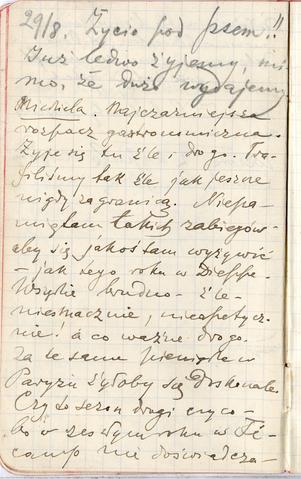 29/8. Życie pod psem!!
Już ledwo żyjemy, mi-
mo, że dużo wydajemy
Niedziela. Najczarniejsza
rozpacz gastronomiczna.
Żyje się tu źle i drogo. Tra-
filiśmy tak źle jak jeszcze
nigdy zagranicą. Niepa-
miętam takich zabiegów
aby się jakośtam wyżywić
– jak tego roku w Dieppe.
Wszystko brudno – źle –
niesmacznie, nieapetycz-
nie! a co ważne drogo.
Za te same pieniądze w
Paryżu żyłoby się doskonale.
Czy to sezon drogi czy co –
bo w zeszłym roku w Fé-
camp nie doświadcza-